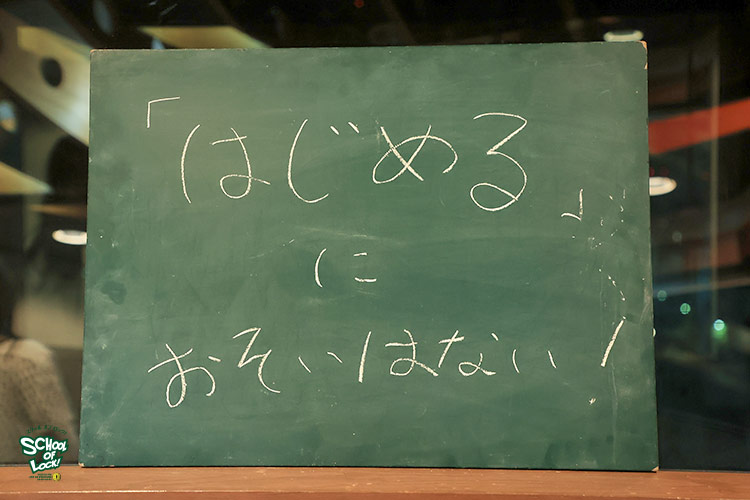 「はじめる」
に
おそいはない!
SCHOOL
OF
LOCK!